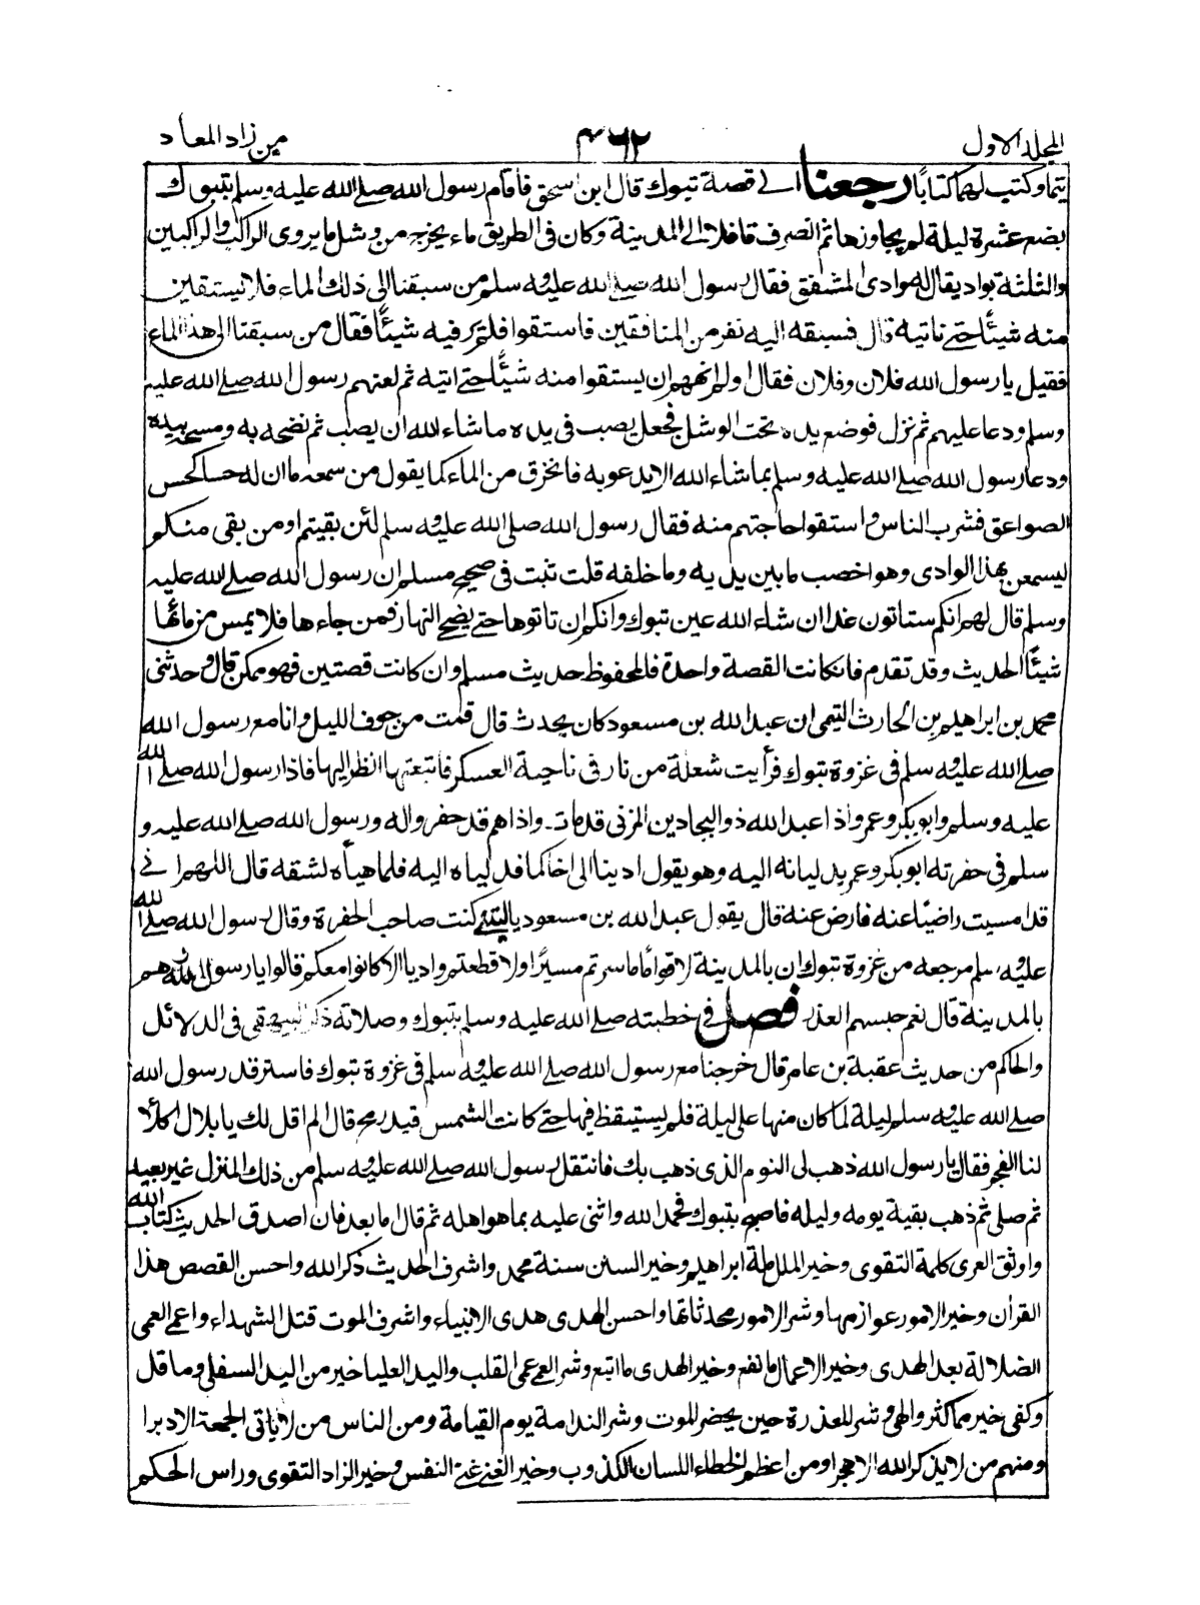 المجلد الاول
٤٦٢
من زاد المعاد
يتما وكتب لهما كتابًا رجعنا الى قصة تبوك قال ابن اسحق فاقام رسول الله صلے الله عليه وسلم بتبوك
بضع عشرة ليلة لم يجاوزها ثم انصرف قافلا الى المدينة وكان فى الطريق ماء يخرج من وشل ما يروى الراكب والراكبين
والثلثة بواد يقال له وادى المشقق فقال رسول الله صلے الله عليه وسلم من سبقنا الى ذلك الماء فلا يستقين
منه شيئًا حتے ناتيه قال فسبقه اليه نفر من المنافقين فاستقوا فلم ير فيه شيئًا فقال من سبقنا الى هذا الماء
فقيل يا رسول الله فلان وفلان فقال اولم انههم ان يستقوا منه شيئًا حتے اتيه ثم لعنهم رسول الله صلے الله عليه
وسلم ودعا عليهم ثم نزل فوضع يده تحت الوشل فجعل يصب فى يده ما شاء الله ان يصب ثم نضحه به ومسحه بيده
ودعا رسول الله صلے الله عليه وسلم بما شاء الله الا يدعو به فانخرق من الماء كما يقول من سمعه ما ان له حسا كحس
الصواعق فشرب الناس واستقوا حاجتهم منه فقال رسول الله صلى الله عليه وسلم لئن بقيتم او من بقى منكم
ليسمعن بهذا الوادى وهو اخصب ما بين يديه وما خلفه قلت ثبت فى صحيح مسلم ان رسول الله صلے الله عليه
وسلم قال لهم انكم ستاتون غدا ان شاء الله عين تبوك وانكم لن تاتوها حتے يضحى النهار فمن جاءها فلا يمس من مائها
شيئًا الحديث وقد تقدم فان كانت القصة واحدة فالمحفوظ حديث مسلم وان كانت قصتين فهو ممكن قال وحدثنى
محمد بن ابراهيم بن الحارث التيمى ان عبد الله بن مسعود كان يحدث قال قمت من جوف الليل وانا مع رسول الله
صلے الله عليه وسلم فى غزوة تبوك فرأيت شعلة من نار فى ناحية العسكر فاتبعتها انظر اليها فاذا رسول الله صلے الله
عليه وسلم وابو بكر وعمر واذا عبد الله ذو البجادين المزنى قد مات واذا هم قد حفروا له ورسول الله صلے الله عليه و
سلم فى حفرته ابو بكر وعمر يدليانه اليه وهو يقول ادينا الى اخاكما فدلياه اليه فلما هيأه لشقه قال اللهم انے
قد امسيت راضيًا عنه فارض عنه قال يقول عبد الله بن مسعود يا ليتنے كنت صاحب الحفرة وقال رسول الله صلے الله
عليه وسلم مرجعه من غزوة تبوك ان بالمدينة لاقوامًا ما سرتم مسيرًا ولا قطعتم واديا الا كانوا معكم قالوا يا رسول الله وهم
بالمدينة قال نعم حبسهم العذر فصل فى خطبته صلے الله عليه وسلم بتبوك وصلاته ذكر البيهقى فى الدلائل
والحاكم من حديث عقبة بن عامر قال خرجنا مع رسول الله صلے الله عليه وسلم فى غزوة تبوك فاسترقد رسول الله
صلے الله عليه وسلم ليلة لما كان منها على ليلة فلم يستيقظ فيها حتے كانت الشمس قيد رمح قال الم اقل لك يا بلال اكلأ
لنا الفجر فقال يا رسول الله ذهب لى النوم الذى ذهب بك فانتقل رسول الله صلے الله عليه وسلم من ذلك المنزل غير بعيد
ثم صلى ثم ذهب بقية يومه وليله فاصبح بتبوك فحمد الله واثنى عليه بما هو اهله ثم قال اما بعد فان اصدق الحديث كتاب الله
واوثق العرى كلمة التقوى وخير الملل ملة ابراهيم وخير السنن سنة محمد واشرف الحديث ذكر الله واحسن القصص هذا
القرأن وخير الامور عوازمها وشر الامور محدثاتها واحسن الهدى هدى الانبياء واشرف الموت قتل الشهداء واعمى العمى
الضلالة بعد الهدى وخير الاعمال ما نفع وخير الهدى ما اتبع وشر العمى عمى القلب واليد العليا خير من اليد السفلى وما قل
وكفى خير مما كثر والهى وشر المعذرة حين يحضر الموت وشر الندامة يوم القيامة ومن الناس من لا ياتى الجمعة الا دبرا
ومنهم من لا يذكر الله الا هجرا ومن اعظم الخطاء اللسان الكذوب وخير الغنے غنے النفس وخير الزاد التقوى وراس الحكم